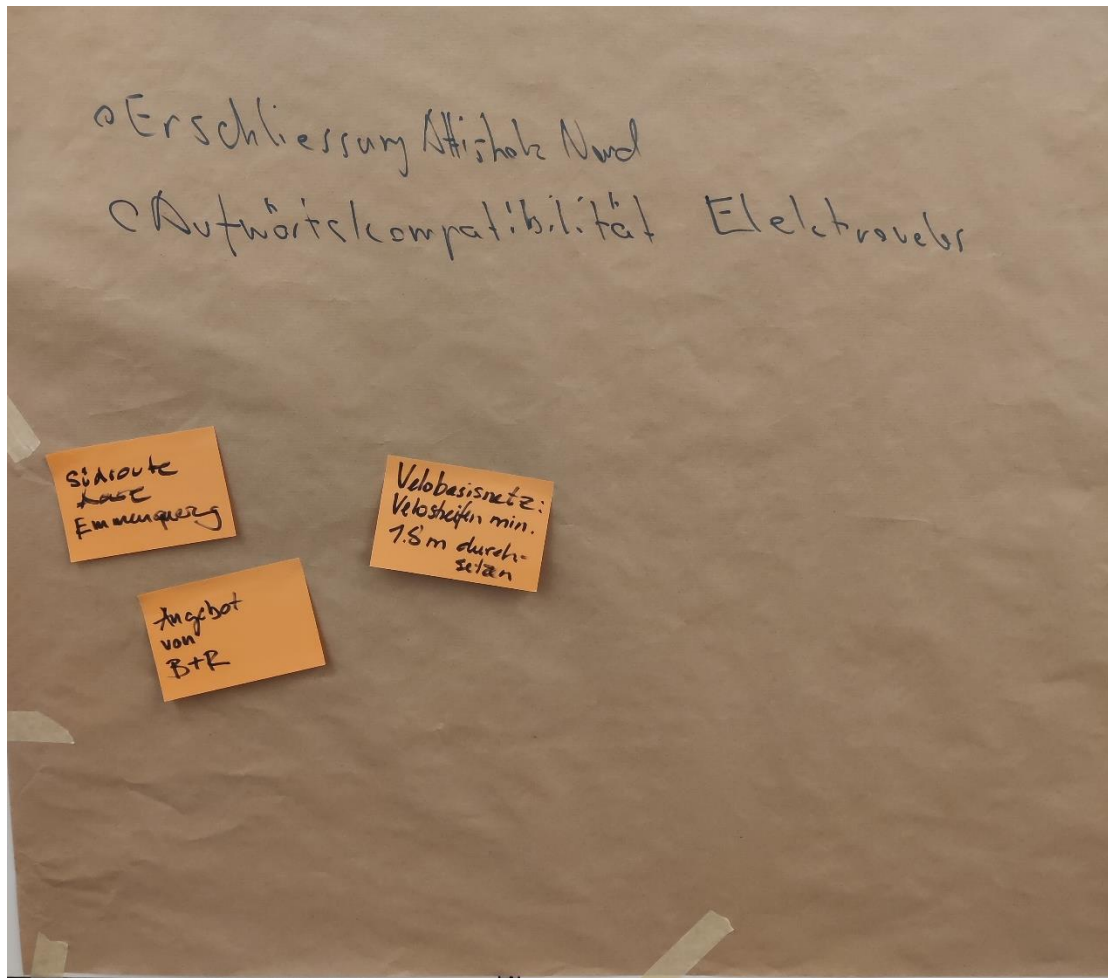 Erschliessung Attisholz Nord
Aufwärtskompatibilität Elektrovelos
Südroute
Emmenquerg
Velobasisnetz:
Velostreifen min.
1.8m durch-
setzen
Angebot
von
B+R